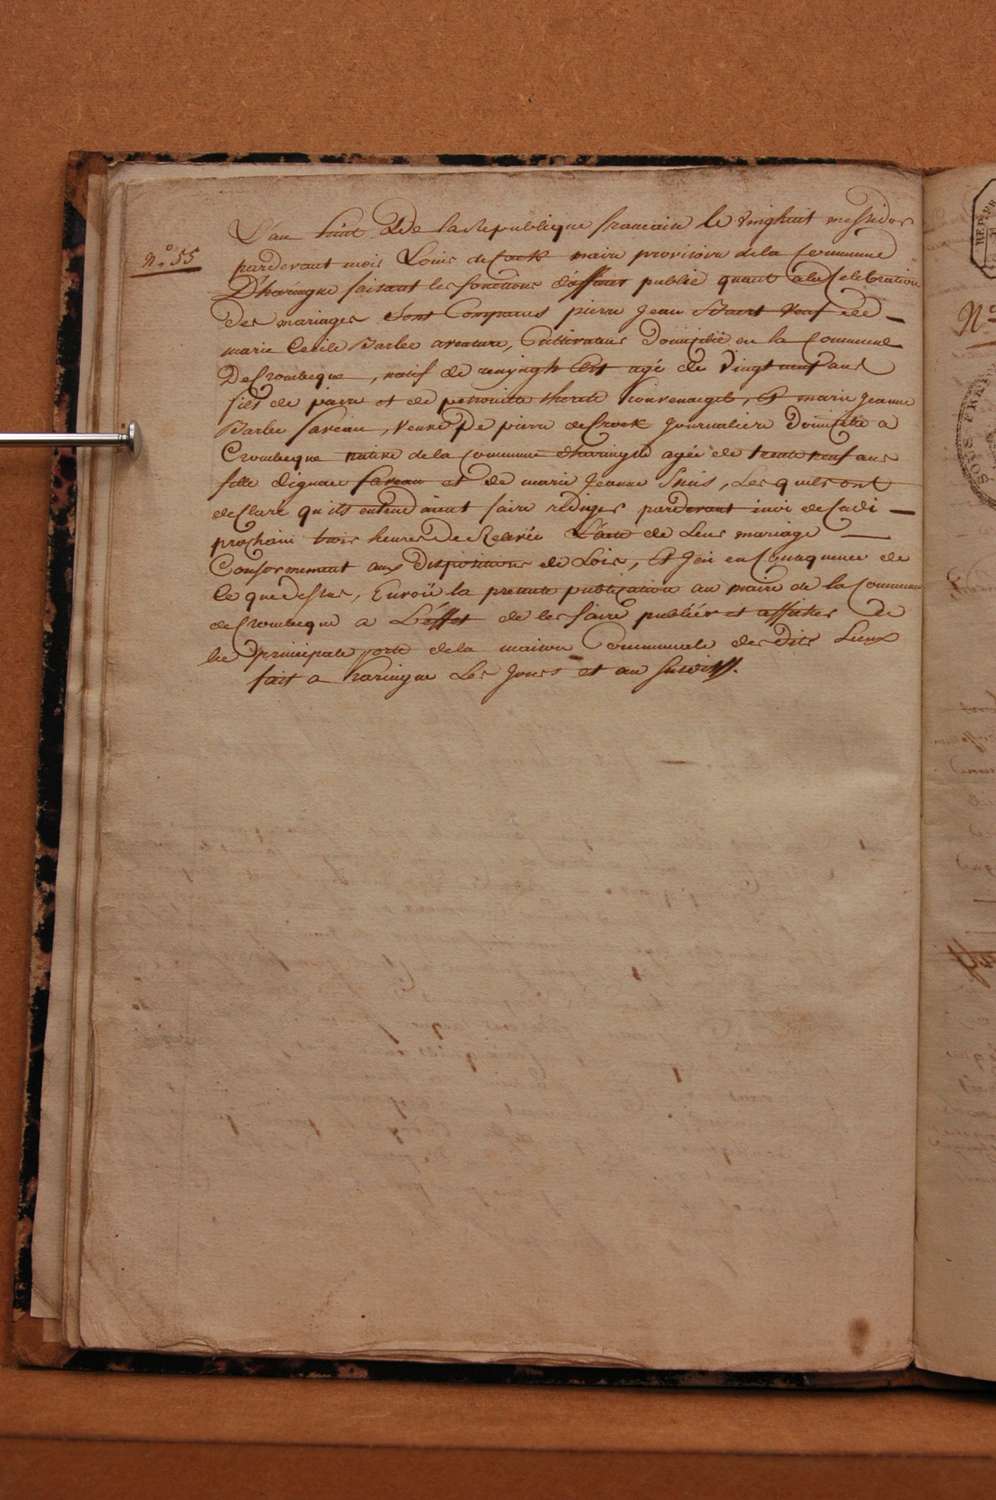 N.º 55
L'an huit De la Republique francaise le vingthuit messidor
pardevant mois Louis de Cock maire provisoire de la Commune
D'haringue faisant les fonctions d'officier public quant a la Celebration
des mariages Sont Comparus pierre Jean Baert veuf de
marie Cecile Barbe , Cultivateur Domicilié en la Commune
De Crombeque , natif de agé de vingt neuf ans
fils de pierre et de petronille therese , Et marie Jeanne
Barbe fareau , veuve De pierre de Crock Journaliere Domicilié a
Crombeque native de la Commune d'haringue agée de trente neuf ans
fille d'ignace fareau et de marie Jeanne Snis , Les quils ont
declaré qu'ils entendaient faire rediger pardevant moi decadi
prochain trois heures De Relevée L'acte de Leur mariage
Conformement aux Dispositions de Lois , Et J'ai en Consequence de
Ce que dessus , Envoié la presente publication au maire de la Commune
de Crombeque a L'effet de les faire publiér et afficher de
la principale porte de la maison Communale des dits Lieux
fait a haringue Les Jours et an
N.º
REP.